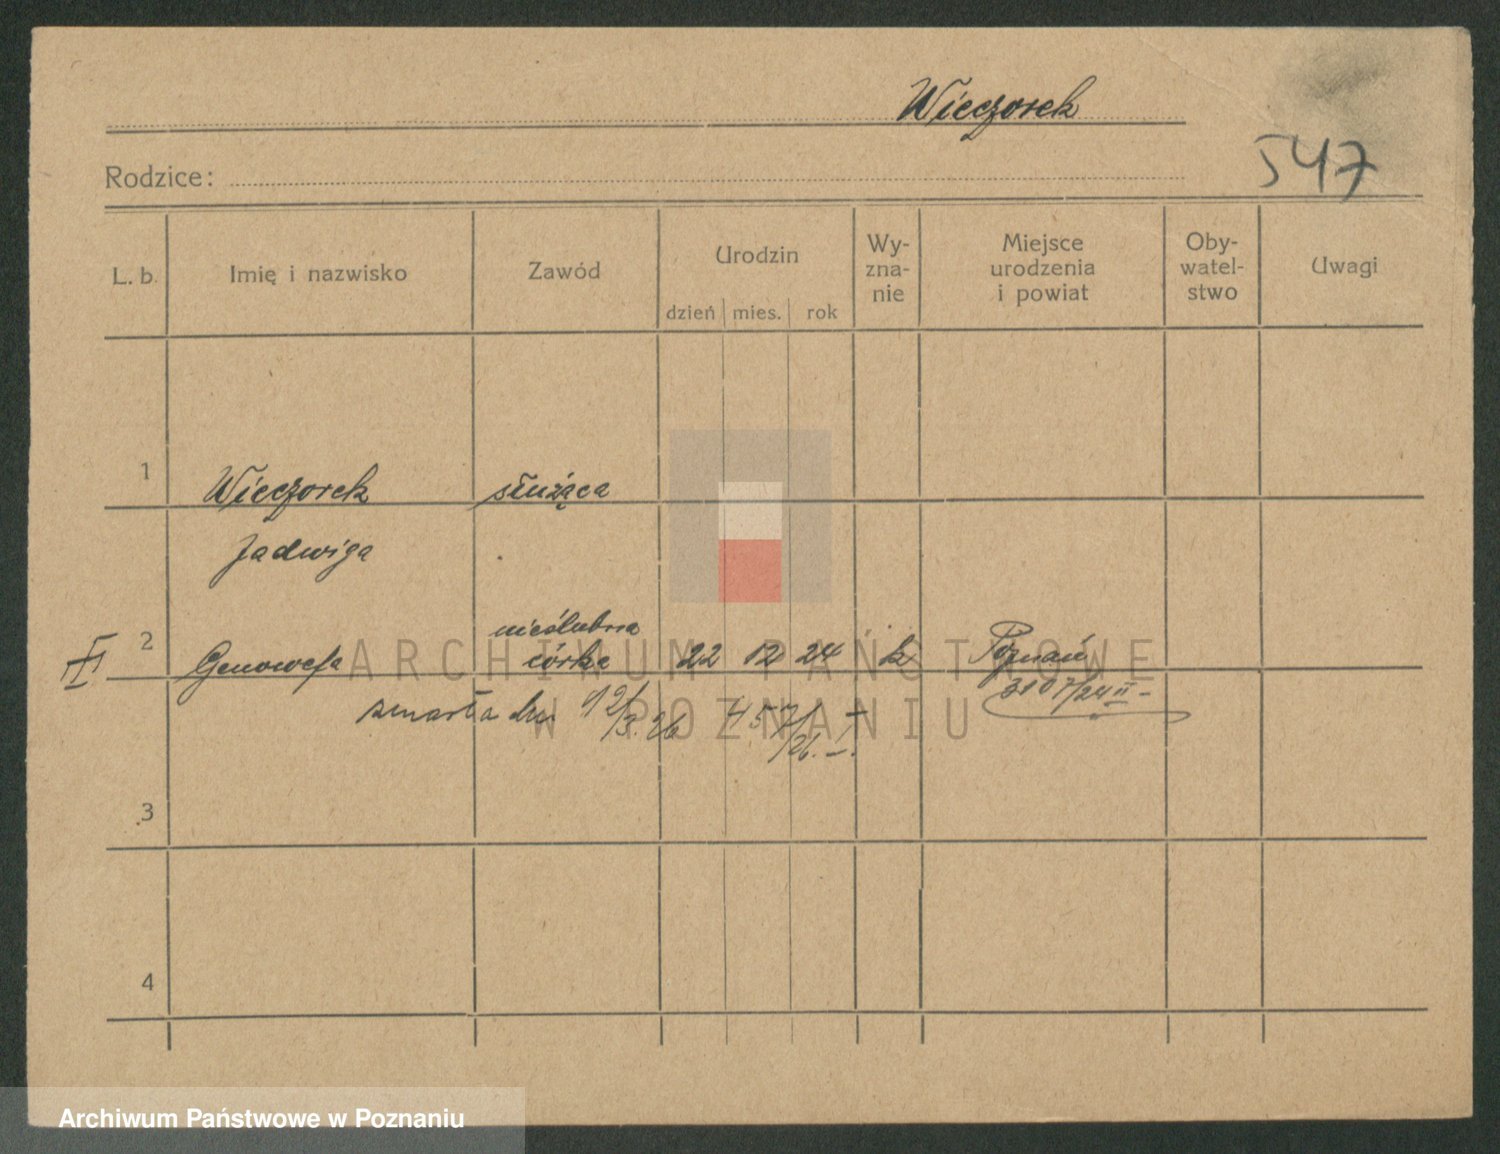 Wieczorek
547
Rodzice:
L. b. Imię i nazwisko Zawód Urodzin dzień mies. rok Wy-zna-nie Miejsce urodzenia i powiat Oby-watel-stwo Uwagi
1 Wieczorek służąca
Jadwiga
nieślubna
2 Genowefa córka 22 12 24 k Poznań
3107/24 II
zmarła dn. 12/3.26 457/26. I.
3
4
ARCHIWUM PAŃSTWOWE
W POZNANIU
Archiwum Państwowe w Poznaniu